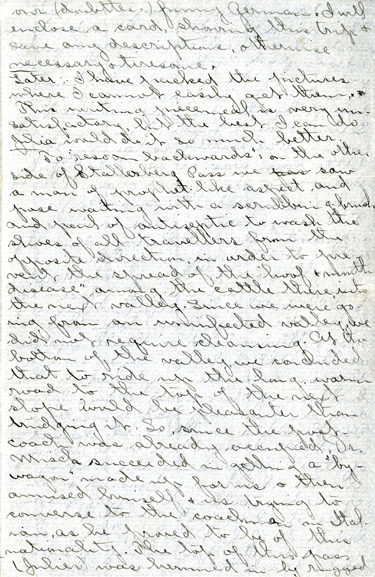 own (dialettes,) funny German. I will
enclose a card, showing this trip &
save any descriptions, otherwise
necessary, or tiresome.
Later. I have packed the pictures
where I cannot easily get them.
This writing piecemeal is very un-
satisfactory, but the best I can do.
would do it so much better.
To "reason backwards": on the other
side of Stallerberg Pass we saw
a man of prophet-like aspect and
pose waiting with a scrubbing-brush,
and pail of antiseptic to wash the
shoes of all travellers from the
opposite direction, in order to pre-
vent the spread of the "hoof & mouth
disease" among the cattle there into
the next valley. Since we were go-
ing from an uninfected valley, we
did not require cleansing. At the
bottom of the valley we concluded
that to ride up the long, warm
road to the top of the next
slope would be pleasanter than
trudging it. So, since the post-
coach was already occupied, Dr.
succeeded in getting a "by-
wagon" made up for us & then
amused himself & us trying to
converse to the coachman in Ital-
ian, as he proved to be of this
nationality. The top of this pass
Julier was hemmed in by rugged